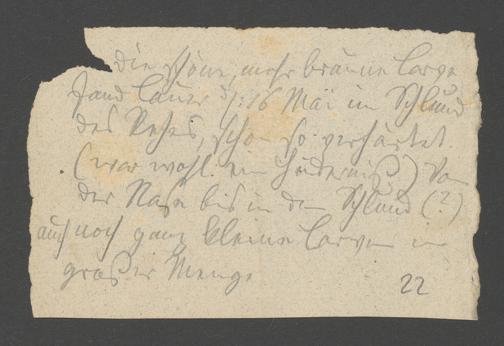 Die schöne, mehr braune Larve
fand Lauer d. 16 Mai im Schlund
des Rehes, schon so verhärtet.
(war wohl ein Hinderniß) Von
der Nase bis in den Schlund (?)
auch noch ganz kleine Larven in
großer Menge
22